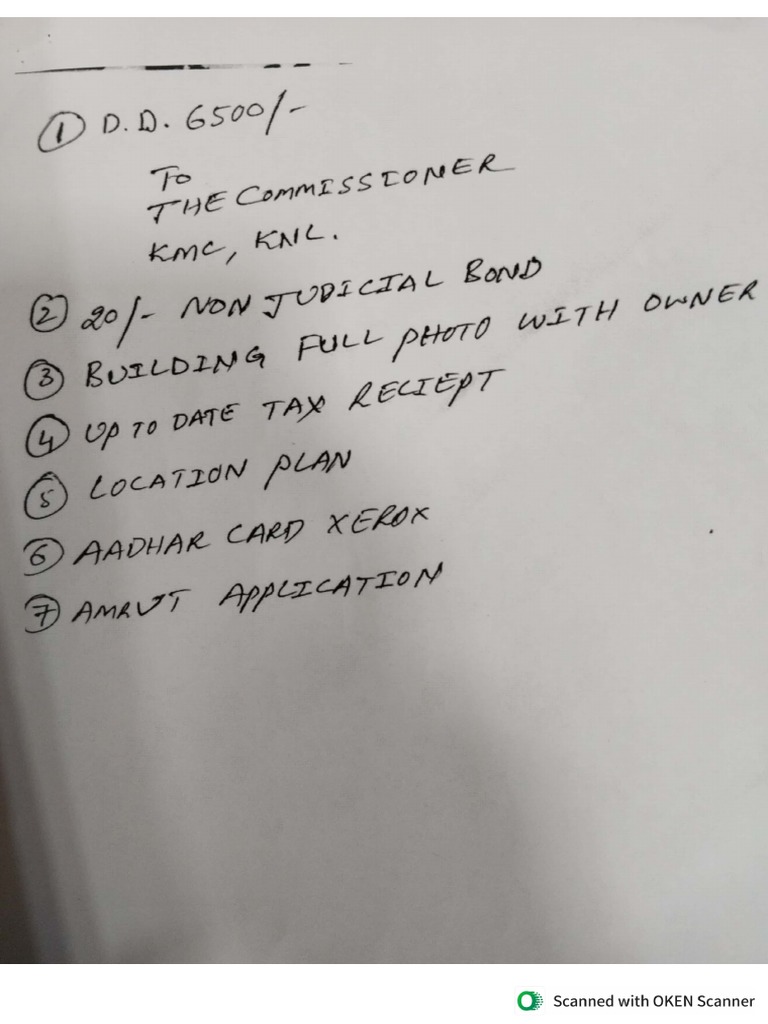 ① D.D. 6500/-
To
THE COMMISSIONER
KMC, KNL.
② 20/- NON JUDICIAL BOND
③ BUILDING FULL PHOTO WITH OWNER
④ UP TO DATE TAX RECIEPT
⑤ LOCATION PLAN
⑥ AADHAR CARD XEROX
⑦ AMRUT APPLICATION
Scanned with OKEN Scanner